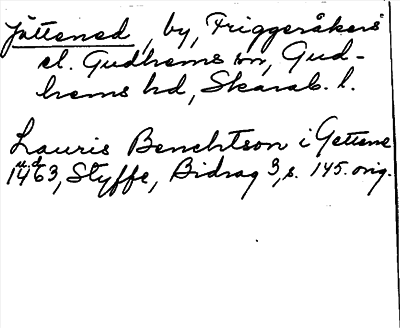 Jättened, by, Friggeråkers
el. Gudhems sn, Gud-
hems hd, Skarab. l.
Lauris Benchtson i Gettene
1463, Styffe, Bidrag 3, s. 145. orig.